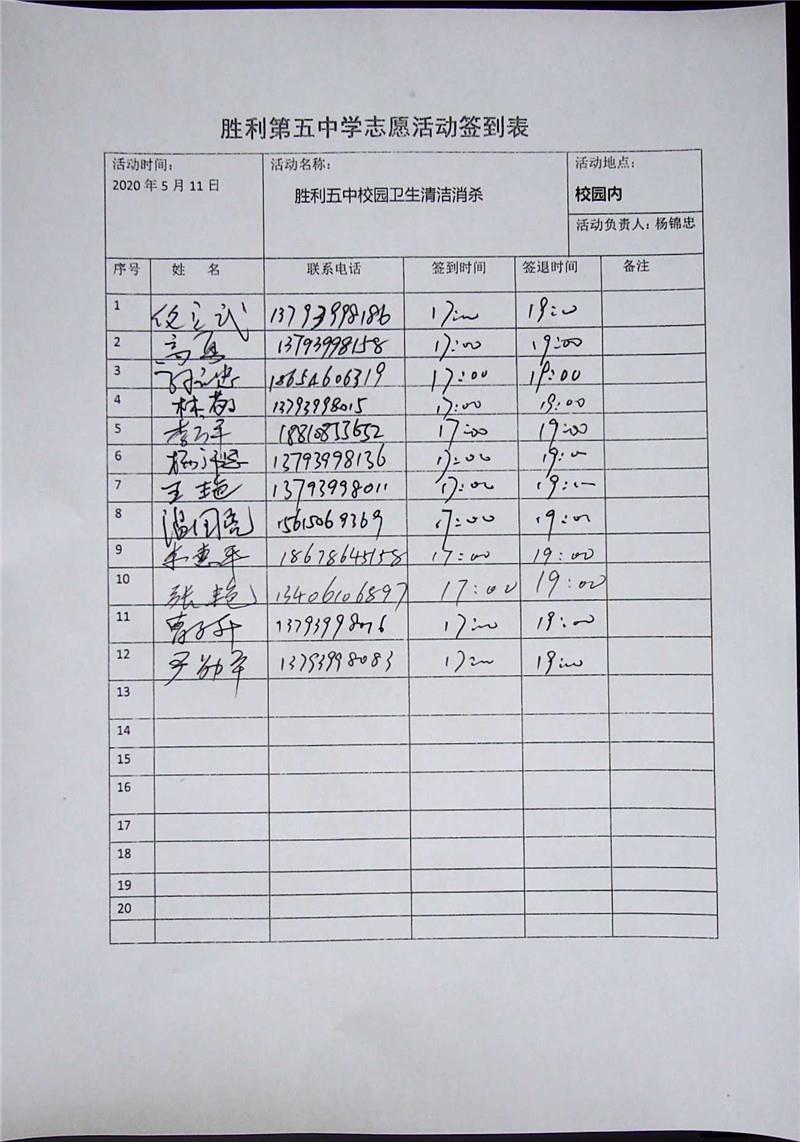 胜利第五中学志愿活动签到表
活动时间： 活动名称： 活动地点：
2020 年 5 月 11 日 胜利五中校园卫生清洁消杀 校园内
活动负责人：杨锦忠
序号 姓 名 联系电话 签到时间 签退时间 备注
1 13793998186 17:00 19:00
2 13793998158 17:00 19:00
3 18654606319 17:00 19:00
4 林 13793998015 17:00 19:00
5 18810853652 17:00 19:00
6 13793998136 17:00 19:00
7 王艳 13793998011 17:00 19:00
8 温国亮 15615069369 17:00 19:00
9 朱惠平 18678645158 17:00 19:00
10 张艳 13406106897 17:00 19:00
11 曹 17:00 19:00
12 13793998083 17:00 19:00
13
14
15
16
17
18
19
20